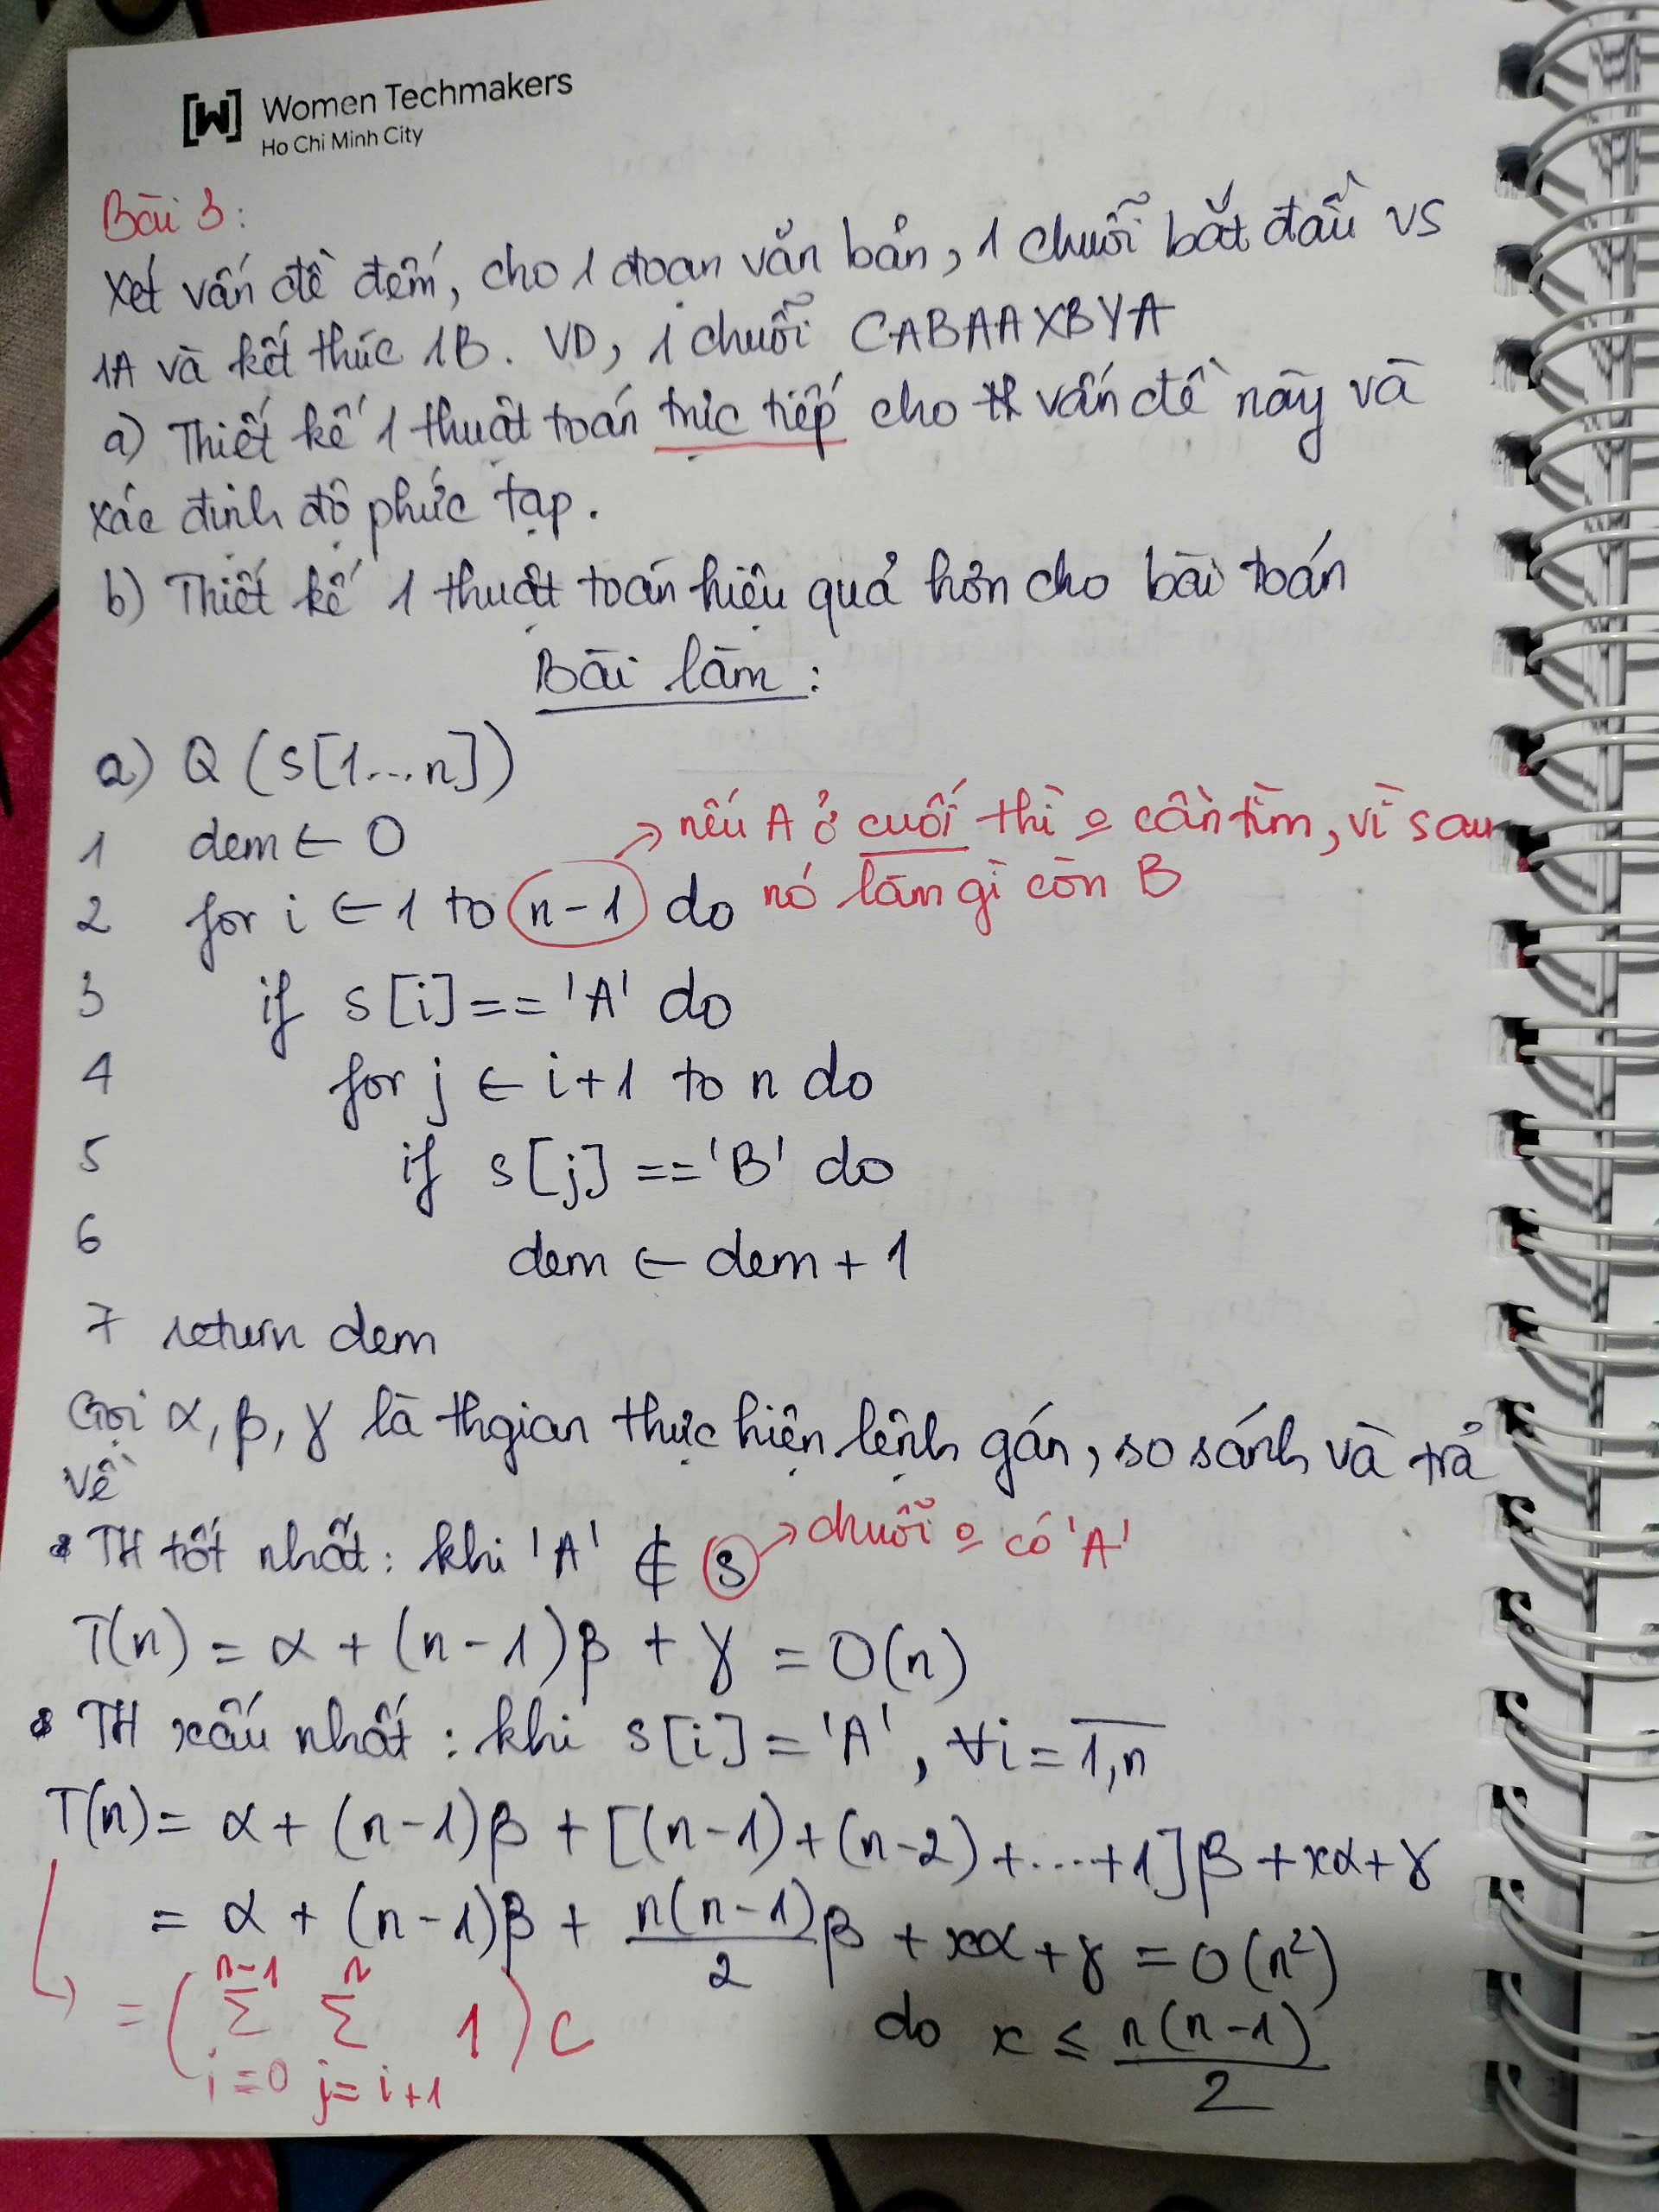 [W] Women Techmakers
Ho Chi Minh City
Bài 3:
Xét vấn đề đếm, cho 1 đoạn văn bản, 1 chuỗi bắt đầu vs
1A và kết thúc 1B. VD, 1 chuỗi CABAAXBYA
a) Thiết kế 1 thuật toán trực tiếp cho vấn đề này và
xác định độ phức tạp.
b) Thiết kế 1 thuật toán hiệu quả hơn cho bài toán
Bài làm:
a) Q (S[1...n])
1 dem ← 0
→ nếu A ở cuối thì o cần tìm, vì sau
nó làm gì còn B
2 for i ← 1 to n-1 do
3 if s[i] == 'A' do
4 for j ← i+1 to n do
5 if s[j] == 'B' do
6 dem ← dem + 1
7 return dem
Gọi α, β, γ là thgian thực hiện lệnh gán, so sánh và trả
về
• TH tốt nhất: khi 'A' ∉ S → chuỗi o có 'A'
T(n) = α + (n-1)β + γ = O(n)
• TH xấu nhất: khi s[i] = 'A', ∀i = 1,n
T(n) = α + (n-1)β + [(n-1)+(n-2)+...+1]β + xα + γ
= α + (n-1)β + n(n-1)/2 β + xα + γ = O(n²)
= (∑_{i=0}^{n-1} ∑_{j=i+1}^{n} 1) C
do x ≤ n(n-1)/2